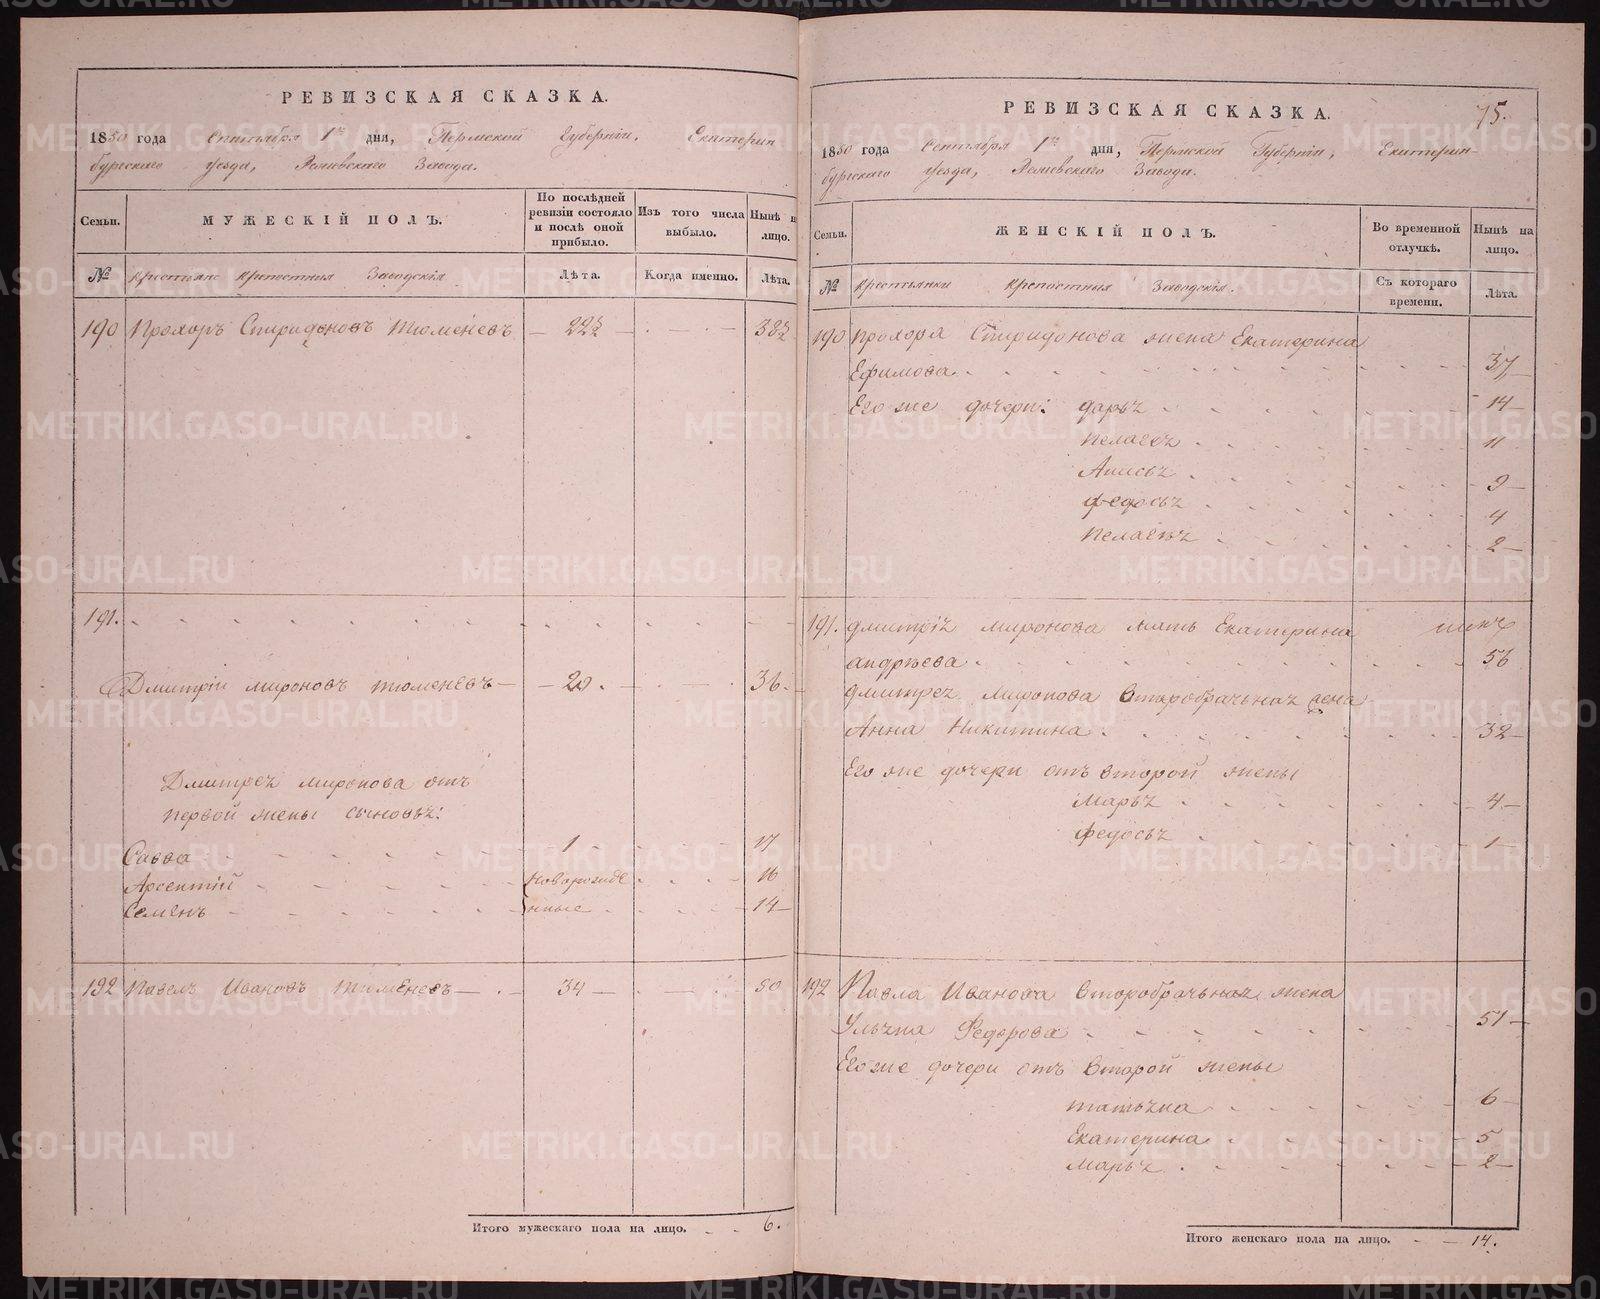 РЕВИЗСКАЯ СКАЗКА.
1850 года Сентября 1го дня, Пермской Губерніи, Екатерин
бургскаго уезда, Режевскаго Завода.
Семьи.
МУЖЕСКІЙ ПОЛЪ.
По послѣдней
ревизіи состояло
и послѣ оной
прибыло.
Изъ того числа
выбыло.
Нынѣ н
лицо.
№
Крестьяне крепостныя Заводскія
Лѣта.
Когда именно.
Лѣта.
190 Прохоръ Спиридоновъ Тюменевъ 22½ 38½
191.
Дмитрій Мироновъ Тюменевъ 20. 36.
Дмитрея Миронова отъ
первой жены сыновья:
Савва 1 17
Арсентій новорожде 16
Семенъ нные 14
192 Павелъ Ивановъ Тюменевъ 34 50
Итого мужескаго пола на лицо. 6.
75.
РЕВИЗСКАЯ СКАЗКА.
1850 года Сентября 1го дня, Пермской Губерніи, Екатерин-
бургскаго уезда, Режевскаго Завода.
Семьи.
ЖЕНСКІЙ ПОЛЪ.
Во временной
отлучкѣ.
Нынѣ на
лицо.
№
Крестьянки крепостныя Заводскія.
Съ котораго
времени.
Лѣта.
190 Прохора Спиридонова жена Екатерина
Ефимова 37
Его же дочери: Дарья 14
Пелагея 11
Анисья 9
Федосья 4
Пелагея 2
191. Дмитрія Миронова мать Екатерина
Андреева 56
Дмитрея Миронова второбрачьная жена
Анна Никитина 32
Его же дочери отъ второй жены
Марья 4
Федосья 1
192 Павла Иванова второбрачьная жена
Ульяна Федорова 51
Его же дочери отъ второй жены
Татьяна 6
Екатерина 5
Марья 2
Итого женскаго пола на лицо. 14.
METRIKI.GASO-URAL.RU